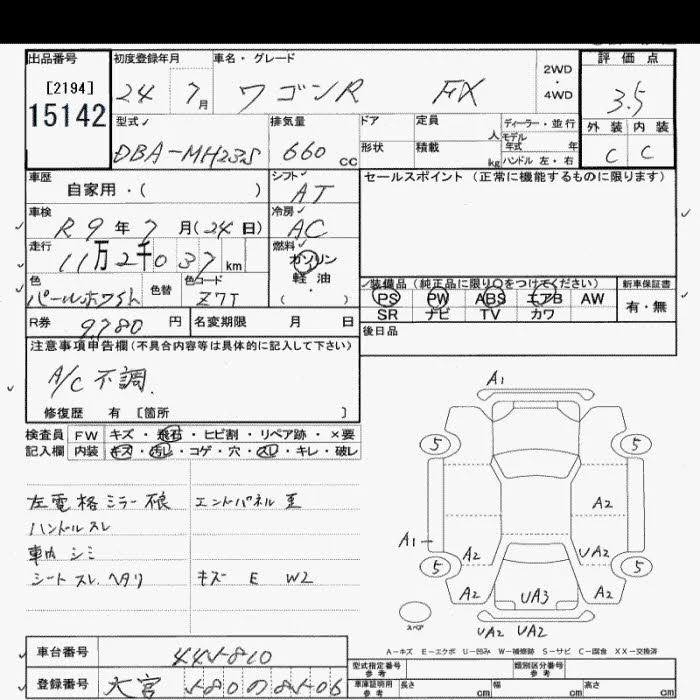 出品番号 初度登録年月 車名・グレード 評価点
[2194] 24 7月 ワゴンR FX 2WD・4WD 3.5
15142
型式 排気量 ドア 定員 人 ディーラー・並行 外装 内装
DBA-MH23S 660cc 形状 積載 kg モデル年式 年 ハンドル 左・右 C C
車歴 シフト セールスポイント(正常に機能するものに限ります)
自家用・( ) AT
車検 冷房
R9年7月(24日) AC
走行 燃料
11万2千037km ガソリン 軽油 ・( )
色 色替 色コード 装備品(純正品に限り○をつけてください) 新車保証書
パールホワイト Z7T PS PW ABS エアB AW 有・無
R券 9,780円 名変期限 月 日 SR ナビ TV カワ
後日品
注意事項申告欄(不具合内容等は具体的に記入して下さい)
A/C 不調.
修復歴 有 [箇所 ]
検査員 FW キズ・飛石・ヒビ割・リペア跡・×要
記入欄 内装 キズ・汚レ・コゲ・穴・スレ・キレ・破レ
左電格ミラー不良 エンドパネル歪
ハンドルスレ
車内シミ
シートスレ.ヘタリ キズ E W2
A1
5 5
A2
A1 A2 UA2
5 5
A2 UA3 A2
スペア UA2 UA2
A-キズ E-エクボ U-凹み W-補修跡 S-サビ C-腐食 XX-交換済
車台番号 445810
型式指定番号 参考 類別区分番号 参考
登録番号 大宮 580 の 85-06
車庫証明用 参考 長さ cm 幅 cm 高さ cm